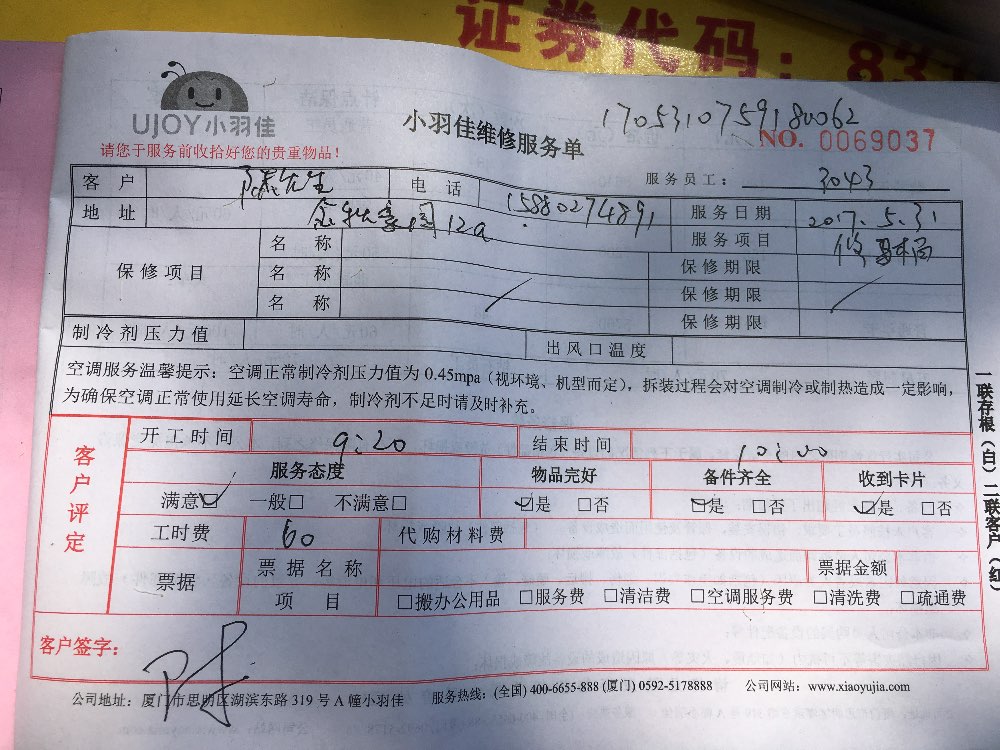 证券代码：831
UJOY小羽佳
请您于服务前收拾好您的贵重物品！
小羽佳维修服务单
1705310759180062
NO. 0069037
服务员工： 3043
客户 陈先生 电话 15880274891 服务日期 2017.5.31
地址 12a 服务项目 修
保修项目 名称 保修期限
名称 保修期限
名称 保修期限
制冷剂压力值 出风口温度
空调服务温馨提示：空调正常制冷剂压力值为 0.45mpa（视环境、机型而定），拆装过程会对空调制冷或制热造成一定影响，
为确保空调正常使用延长空调寿命，制冷剂不足时请及时补充。
客户评定
开工时间 9:20 结束时间 10:00
服务态度 物品完好 备件齐全 收到卡片
满意☑ 一般□ 不满意□ ☑是 □否 ☑是 □否 ☑是 □否
工时费 60 代购材料费
票据 票据名称 票据金额
项目 □搬办公用品 □服务费 □清洁费 □空调服务费 □清洗费 □疏通费
客户签字：
公司地址：厦门市思明区湖滨东路 319 号 A 幢小羽佳 服务热线：(全国) 400-6655-888 (厦门) 0592-5178888 公司网站：www.xiaoyujia.com
一联存根（白）二联客户（红）